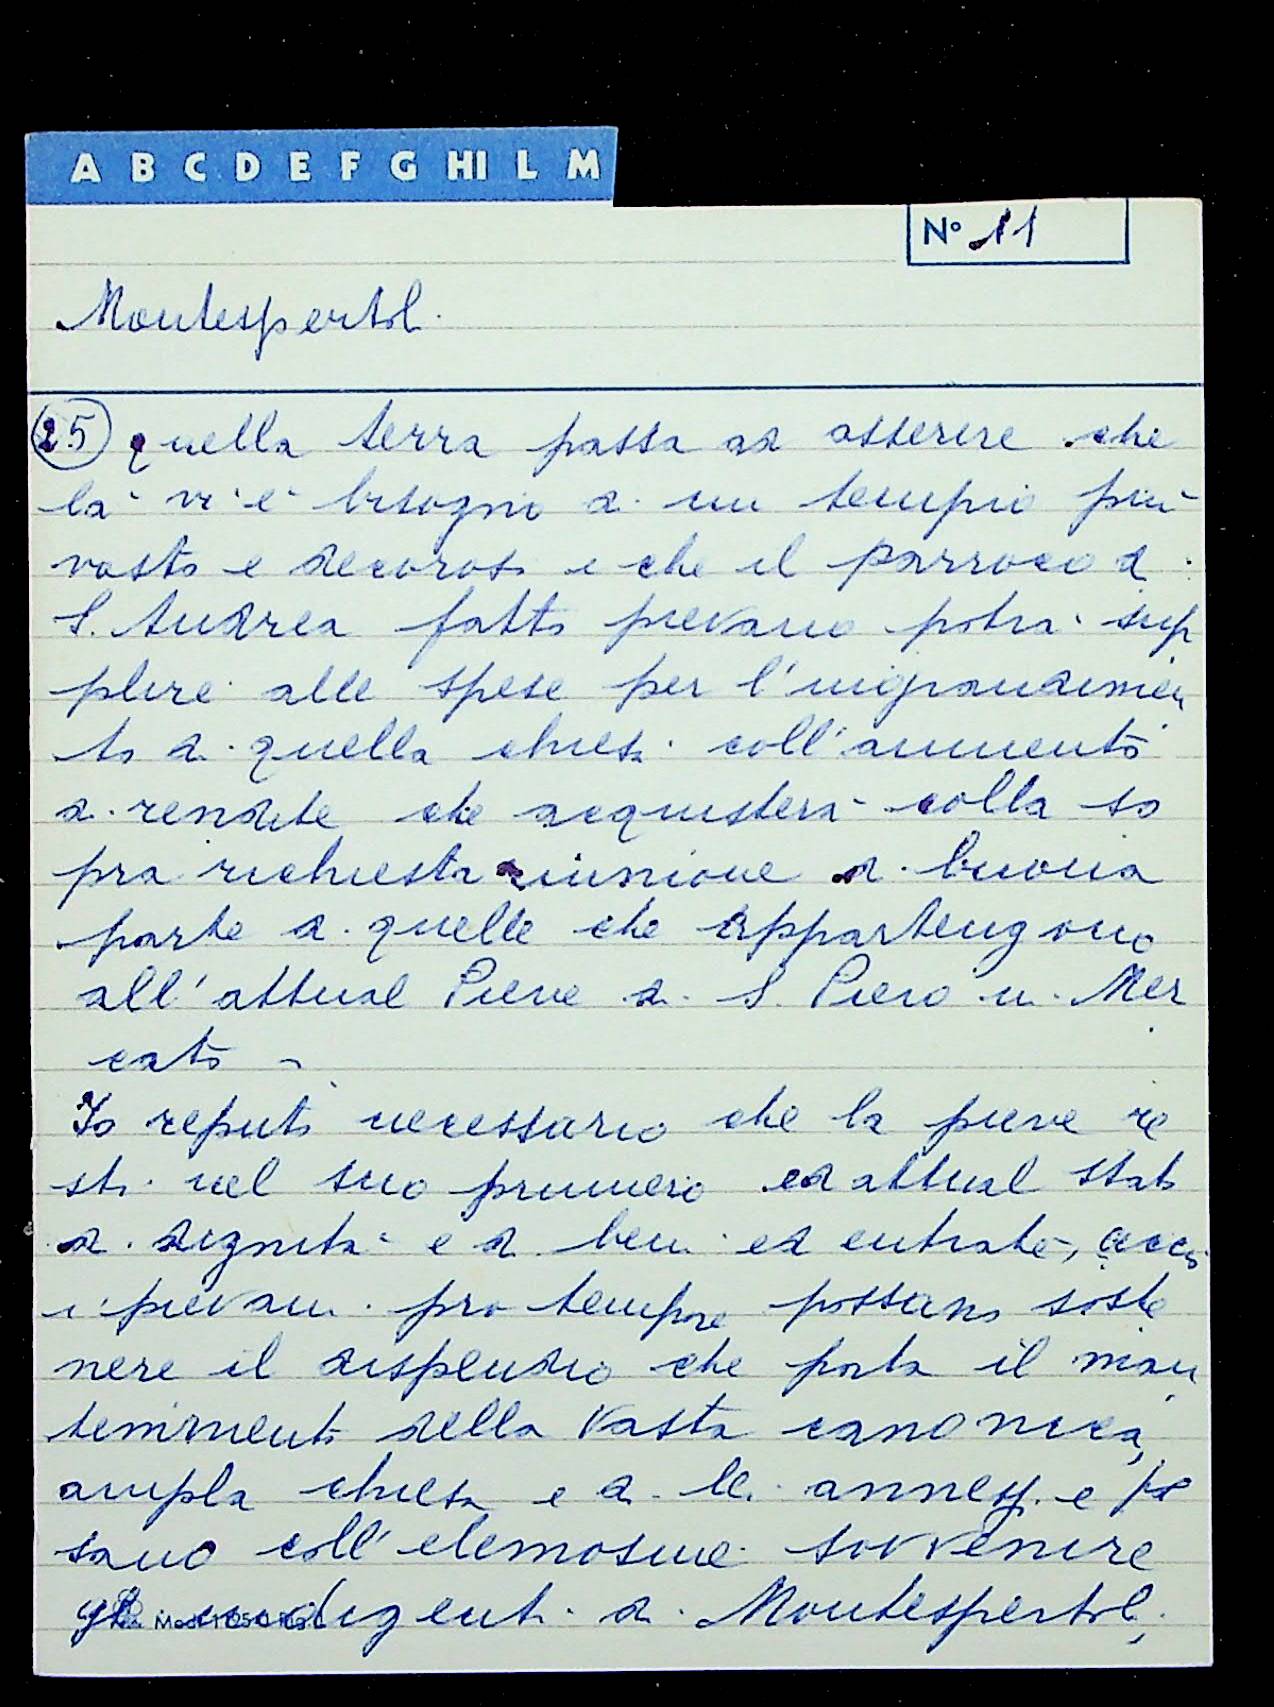 A B C D E F G HI L M
N° 11
Montespertoli
25 quella terra passa ad asserire che
là vi è bisogno di un tempio più
vasto e decoroso e che il parroco di
S. Andrea fatto pievano potrà sup
plire alle spese per l'ingrandimen
to di quella chiesa coll'aumento
di rendite che acquisterà colla so
pra richiesta riunione di buona
parte di quelle che appartengono
all'attual Pieve di S. Piero in Mer
cato
Io reputo necessario che la pieve re
sti nel suo primiero ed attual stato
di dignità e di beni ed entrate, acciò
i pievani pro tempore possano soste
nere il dispendio che porta il man
tenimento della vasta canonica,
ampla chiesa e di lei annessi e pos
sano coll'elemosine sovvenire
gli indigenti di Montespertoli,